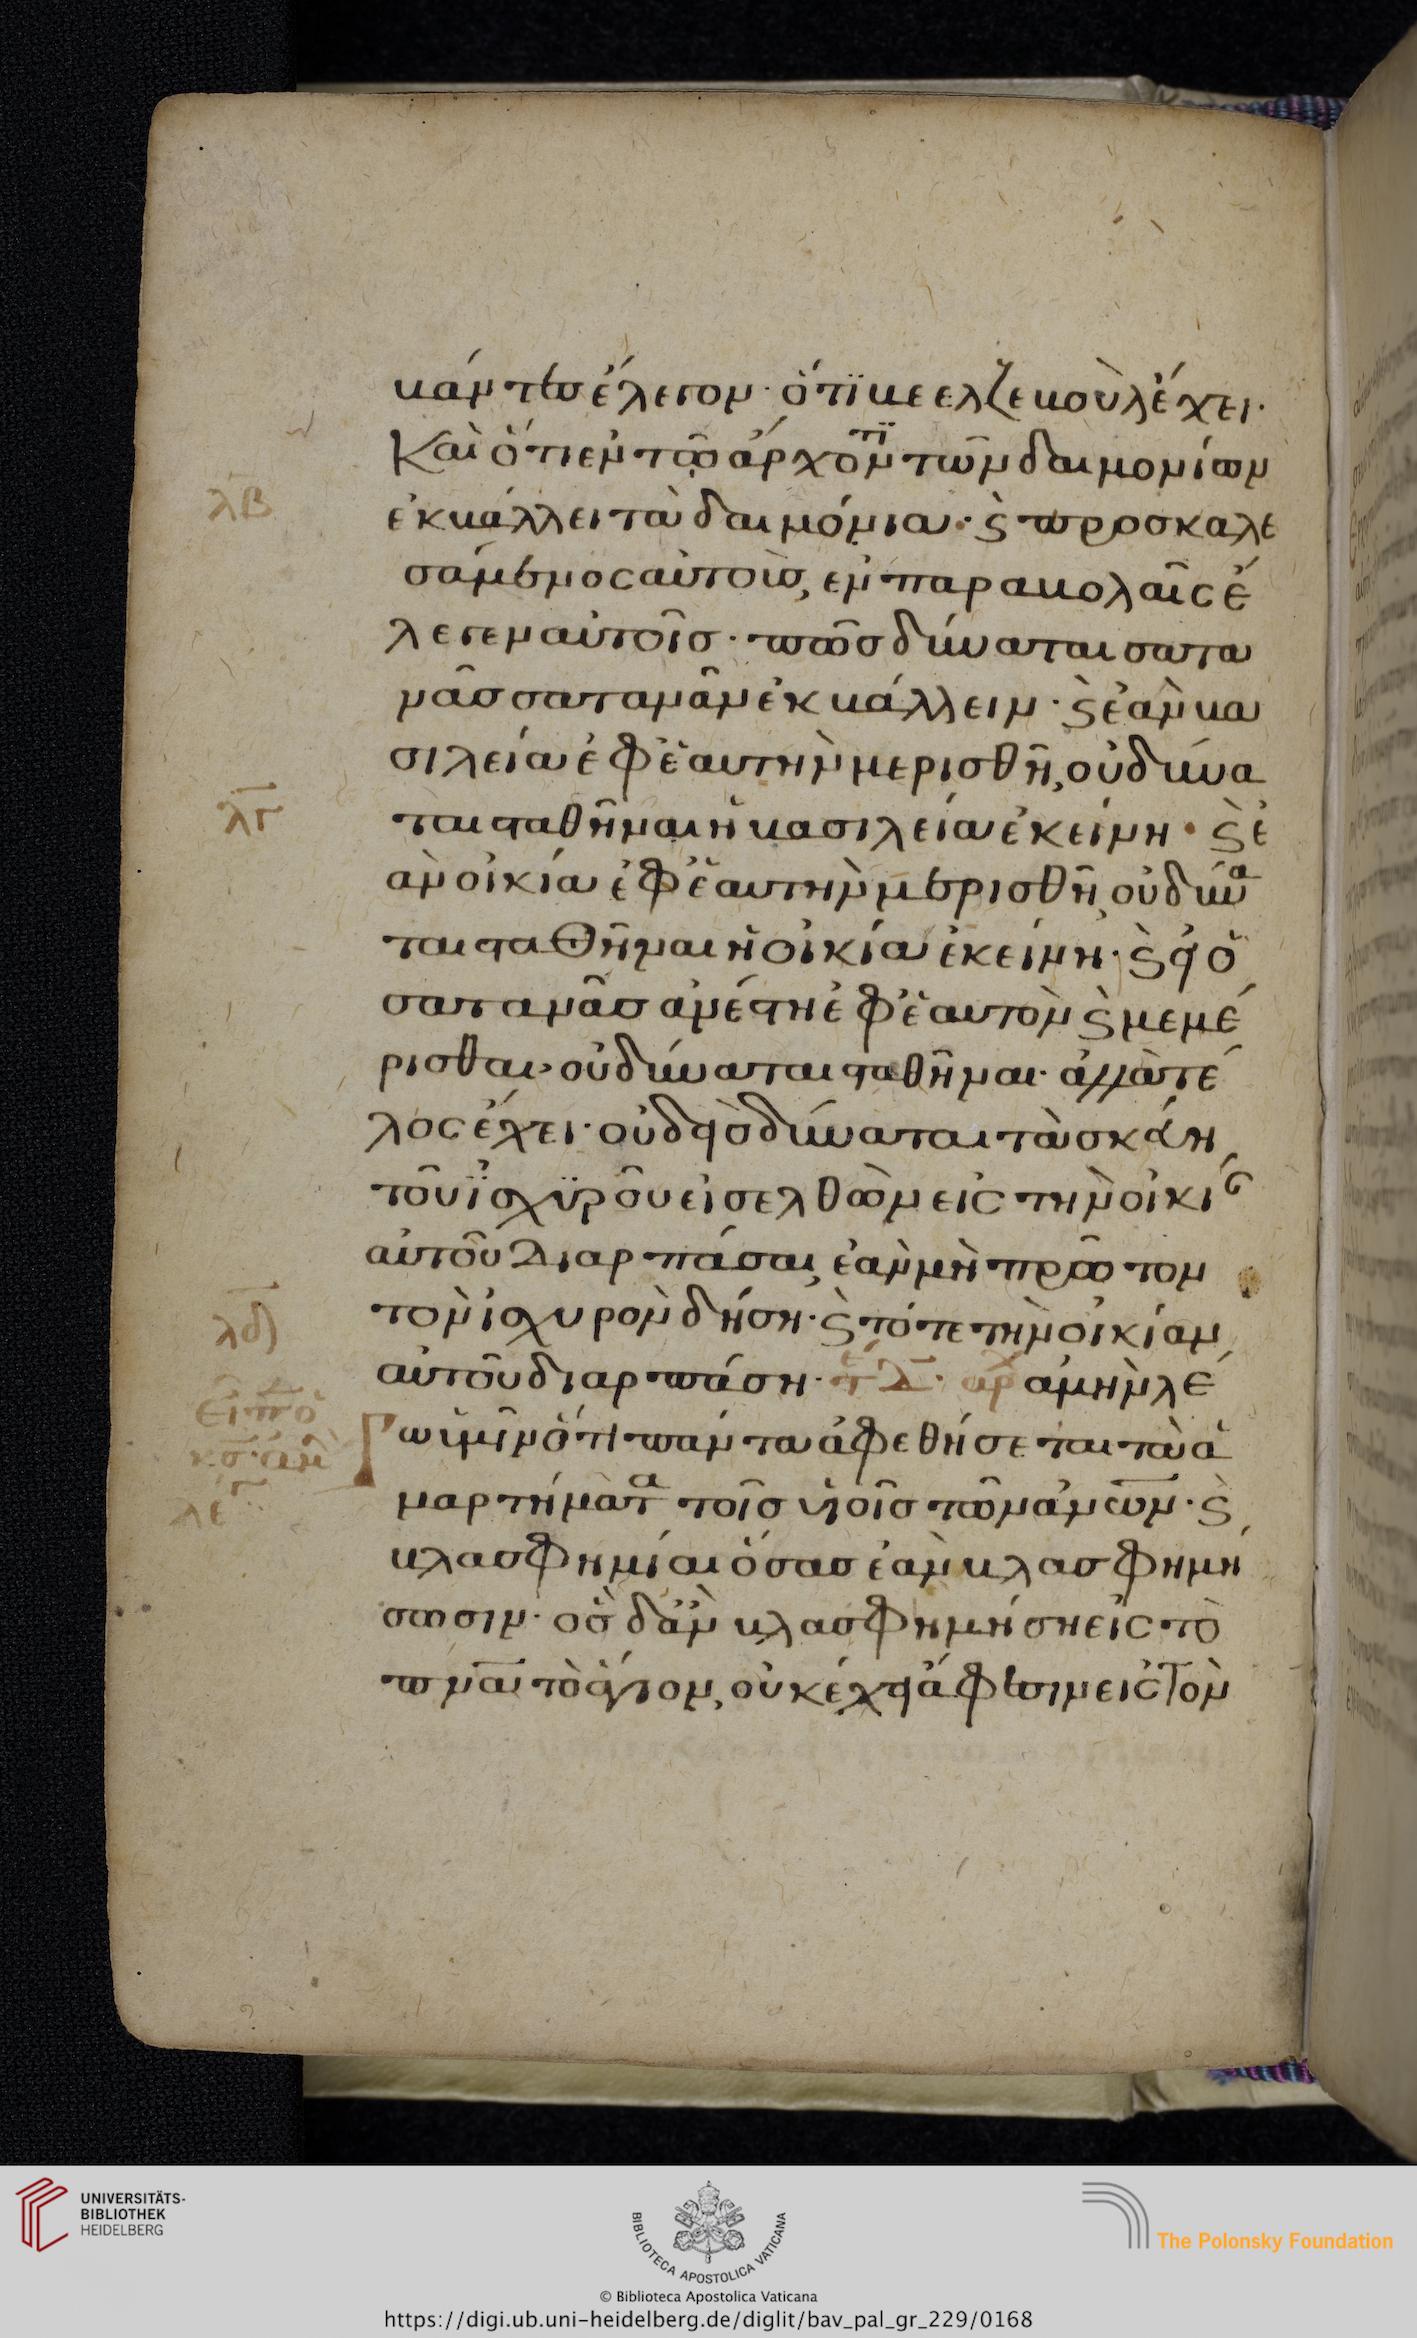 βάντες ἔλεγον· ὅτϊ βεελζεβοὺλ ἔχει·
Καὶ ὅτι ἐν τῶ ἄρχοντϊ τῶν δαιμονίων
λ̅β̅
ἐκβάλλει τὰ δαιμόνια· ϛ̀ προσκαλε
σάμενος αὐτοὺς, ἐν παραβολαῖς ἔ
λεγεν αὐτοῖς· πῶς δύναται σατα
νᾶς σατανᾶν ἐκβάλλειν· ϛ̀ ἐὰν βα
σιλεία ἐφ' ἑαυτὴν μερισθῆ, οὐ δύνα
λ̅γ̅
ται σταθῆναι ἡ βασιλεία ἐκείνη· ϛ̀ ἐ
ὰν οἰκία ἐφ' ἑαυτὴν μερισθῆ, οὐ δύνα
ται σταθῆναι ἡ οἰκία ἐκείνη· ϛ̀ εἰ ὁ
σατανᾶς ἀνέστη ἐφ' ἑαυτὸν ϛ̀ μεμέ
ρισθαι· οὐ δύναται σταθῆναι· ἀλλὰ τέ
λος ἔχει· οὐδεὶς δύναται τὰ σκεύη
τοῦ ἰσχϋροῦ εἰσελθὼν εἰς τὴν οἰκί
αὐτοῦ διαρπάσαι, ἐὰν μὴ πρῶτον
λ̅δ̅
τὸν ἰσχυρὸν δήση· ϛ̀ τότε τὴν οἰκίαν,
αὐτοῦ διαρπάση· Δ̅· αρχ ἀμὴν λέ
Γω ὑμῖν ὅτι πάντα ἀφεθήσεται τὰ ἁ
λ̅ε̅
μαρτήματα τοῖς υἱοῖς τῶν ἀν̅ω̅ν· ϛ̀
βλασφημίαι ὅσας ἐὰν βλασφημή
σωσιν· ὃς δ' ἂν βλασφημήση εἰς τὸ
πν̅α̅ τὸ ἅγιον, οὐκ ἔχει ἄφεσιν εἰς τὸν
UNIVERSITÄTS-
BIBLIOTHEK
HEIDELBERG
BIBLIOTECA APOSTOLICA VATICANA
The Polonsky Foundation
© Biblioteca Apostolica Vaticana
https://digi.ub.uni-heidelberg.de/diglit/bav_pal_gr_229/0168